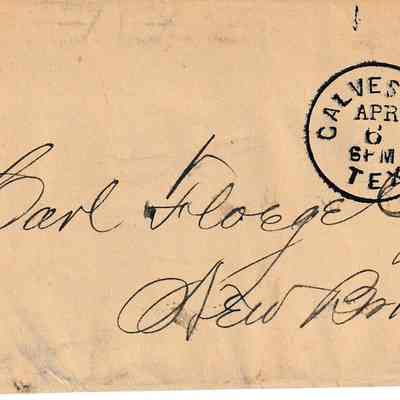 GALVES
APR
6
6PM
TEX
Carl Floege
New Br